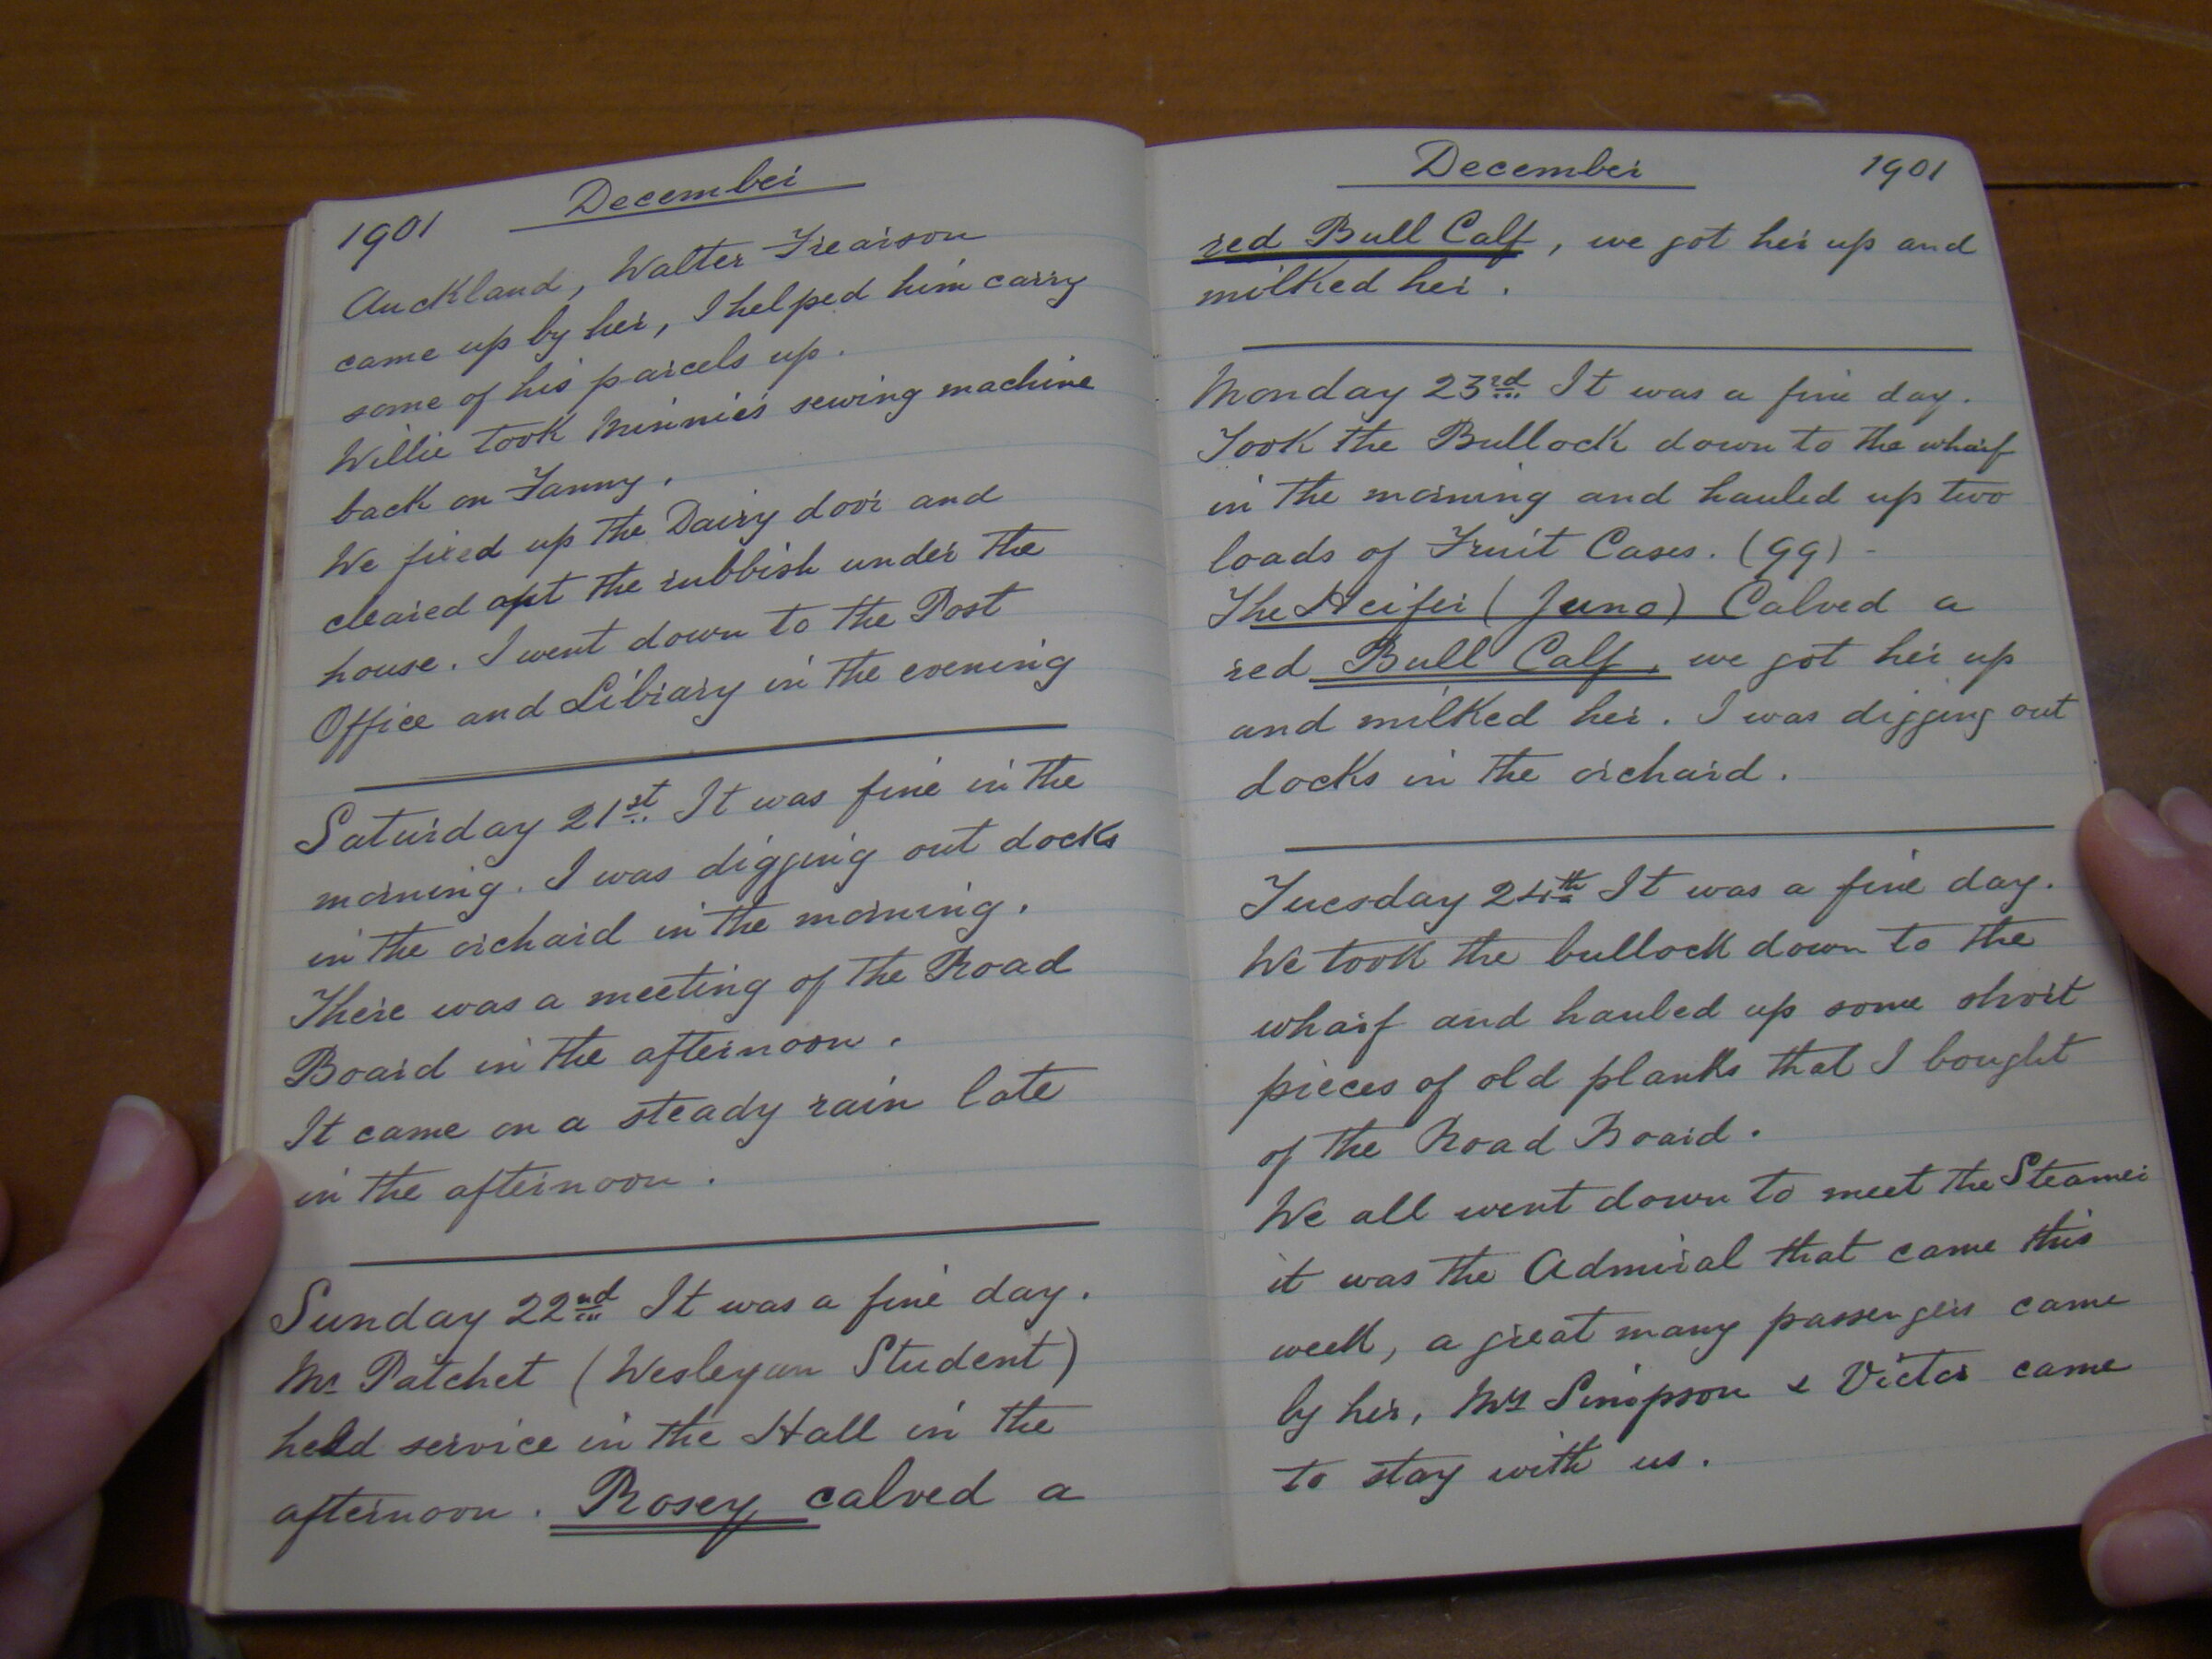 1901 December
Auckland, Walter Frearson
came up by her, I helped him carry
some of his parcels up.
Willie took Minnie's sewing machine
back on Fanny.
We fixed up the Dairy door and
cleared out the rubbish under the
house. I went down to the Post
Office and Library in the evening
Saturday 21st It was fine in the
morning. I was digging out docks
in the orchard in the morning.
There was a meeting of the Road
Board in the afternoon.
It came on a steady rain late
in the afternoon.
Sunday 22nd It was a fine day.
Mr Patchet (Wesleyan Student)
held service in the Hall in the
afternoon. Rosey calved a
December 1901
red Bull Calf, we got her up and
milked her.
Monday 23rd It was a fine day.
Took the Bullock down to the wharf
in the morning and hauled up two
loads of Fruit Cases. (99) -
The Heifer (Juno) Calved a
red Bull Calf, we got her up
and milked her. I was digging out
docks in the orchard.
Tuesday 24th It was a fine day.
We took the bullock down to the
wharf and hauled up some short
pieces of old planks that I bought
of the Road Board.
We all went down to meet the Steamer
it was the Admiral that came this
week, a great many passengers came
by her, Mrs Simpson & Victor came
to stay with us.